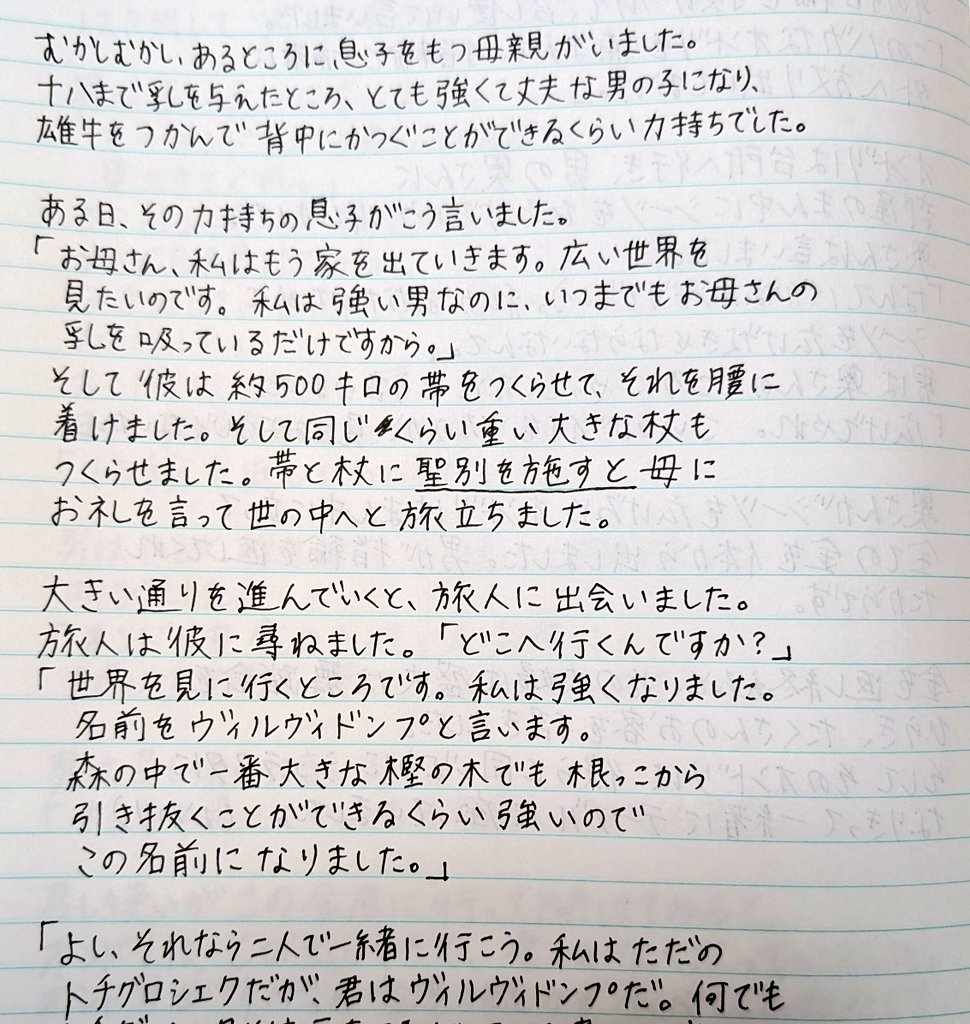 むかしむかし、あるところに、息子をもつ母親がいました。
十八まで乳を与えたところ、とても強くて丈夫な男の子になり、
雄牛をつかんで背中にかつぐことができるくらい力持ちでした。
ある日、その力持ちの息子がこう言いました。
「お母さん、私はもう家を出ていきます。広い世界を
見たいのです。私は強い男なのに、いつまでもお母さんの
乳を吸っているだけですから。」
そして彼は約500キロの帯をつくらせて、それを腰に
着けました。そして同じくらい重い大きな杖も
つくらせました。帯と杖に聖別を施すと母に
お礼を言って世の中へと旅立ちました。
大きい通りを進んでいくと、旅人に出会いました。
旅人は彼に尋ねました。「どこへ行くんですか?」
「世界を見に行くところです。私は強くなりました。
名前をヴィルヴィドンプと言います。
森の中で一番大きな樫の木でも根っこから
引き抜くことができるくらい強いので
この名前になりました。」
「よし、それなら二人で一緒に行こう。私はただの
トチグロシェクだが、君はヴィルヴィドンプだ。何でも